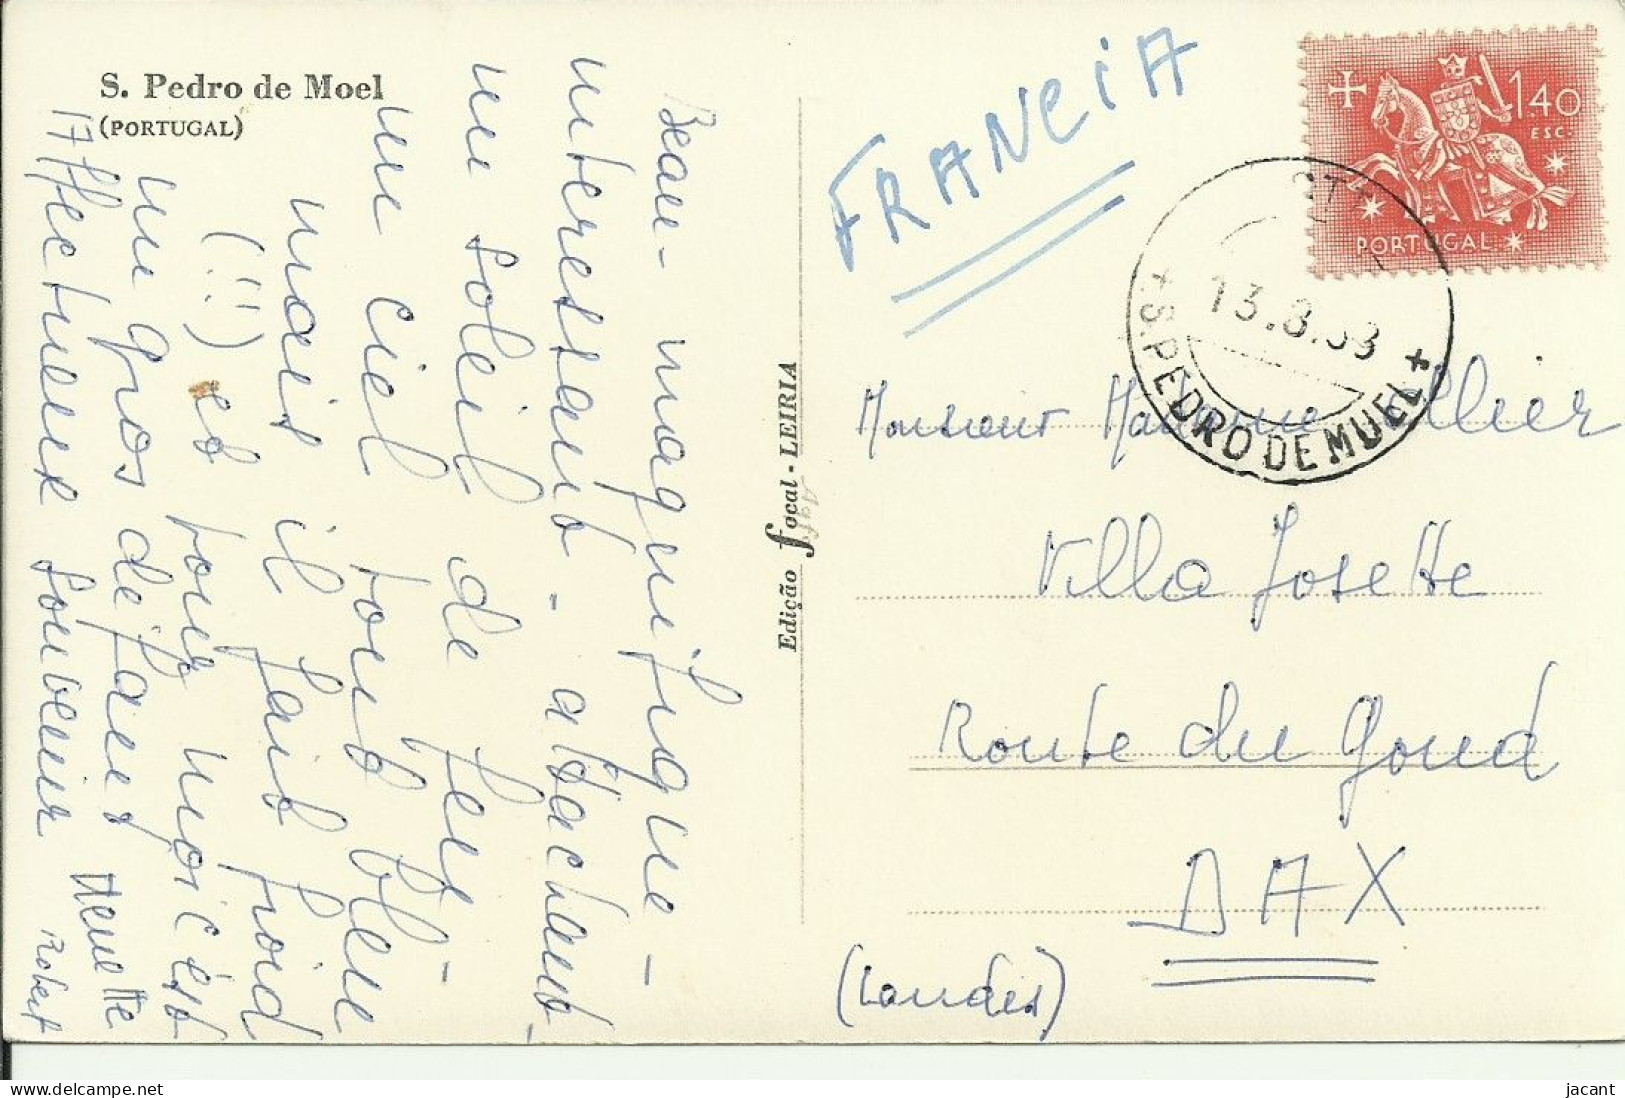 S. Pedro de Moel
(PORTUGAL)
Beau - magnifique -
interessant - attachant -
un soleil de feu -
un ciel tout bleu
mais il fait froid
(!!) et pour nous c'est
un gros défaut
Affectueux souvenir
Robert
Edição focal - LEIRIA
FRANCIA
1$40
ESC.
PORTUGAL
13.8.63
+ S. PEDRO DE MUEL +
Monsieur Madame
Villa Josette
Route du Gond
DAX
(Landes)
jacant